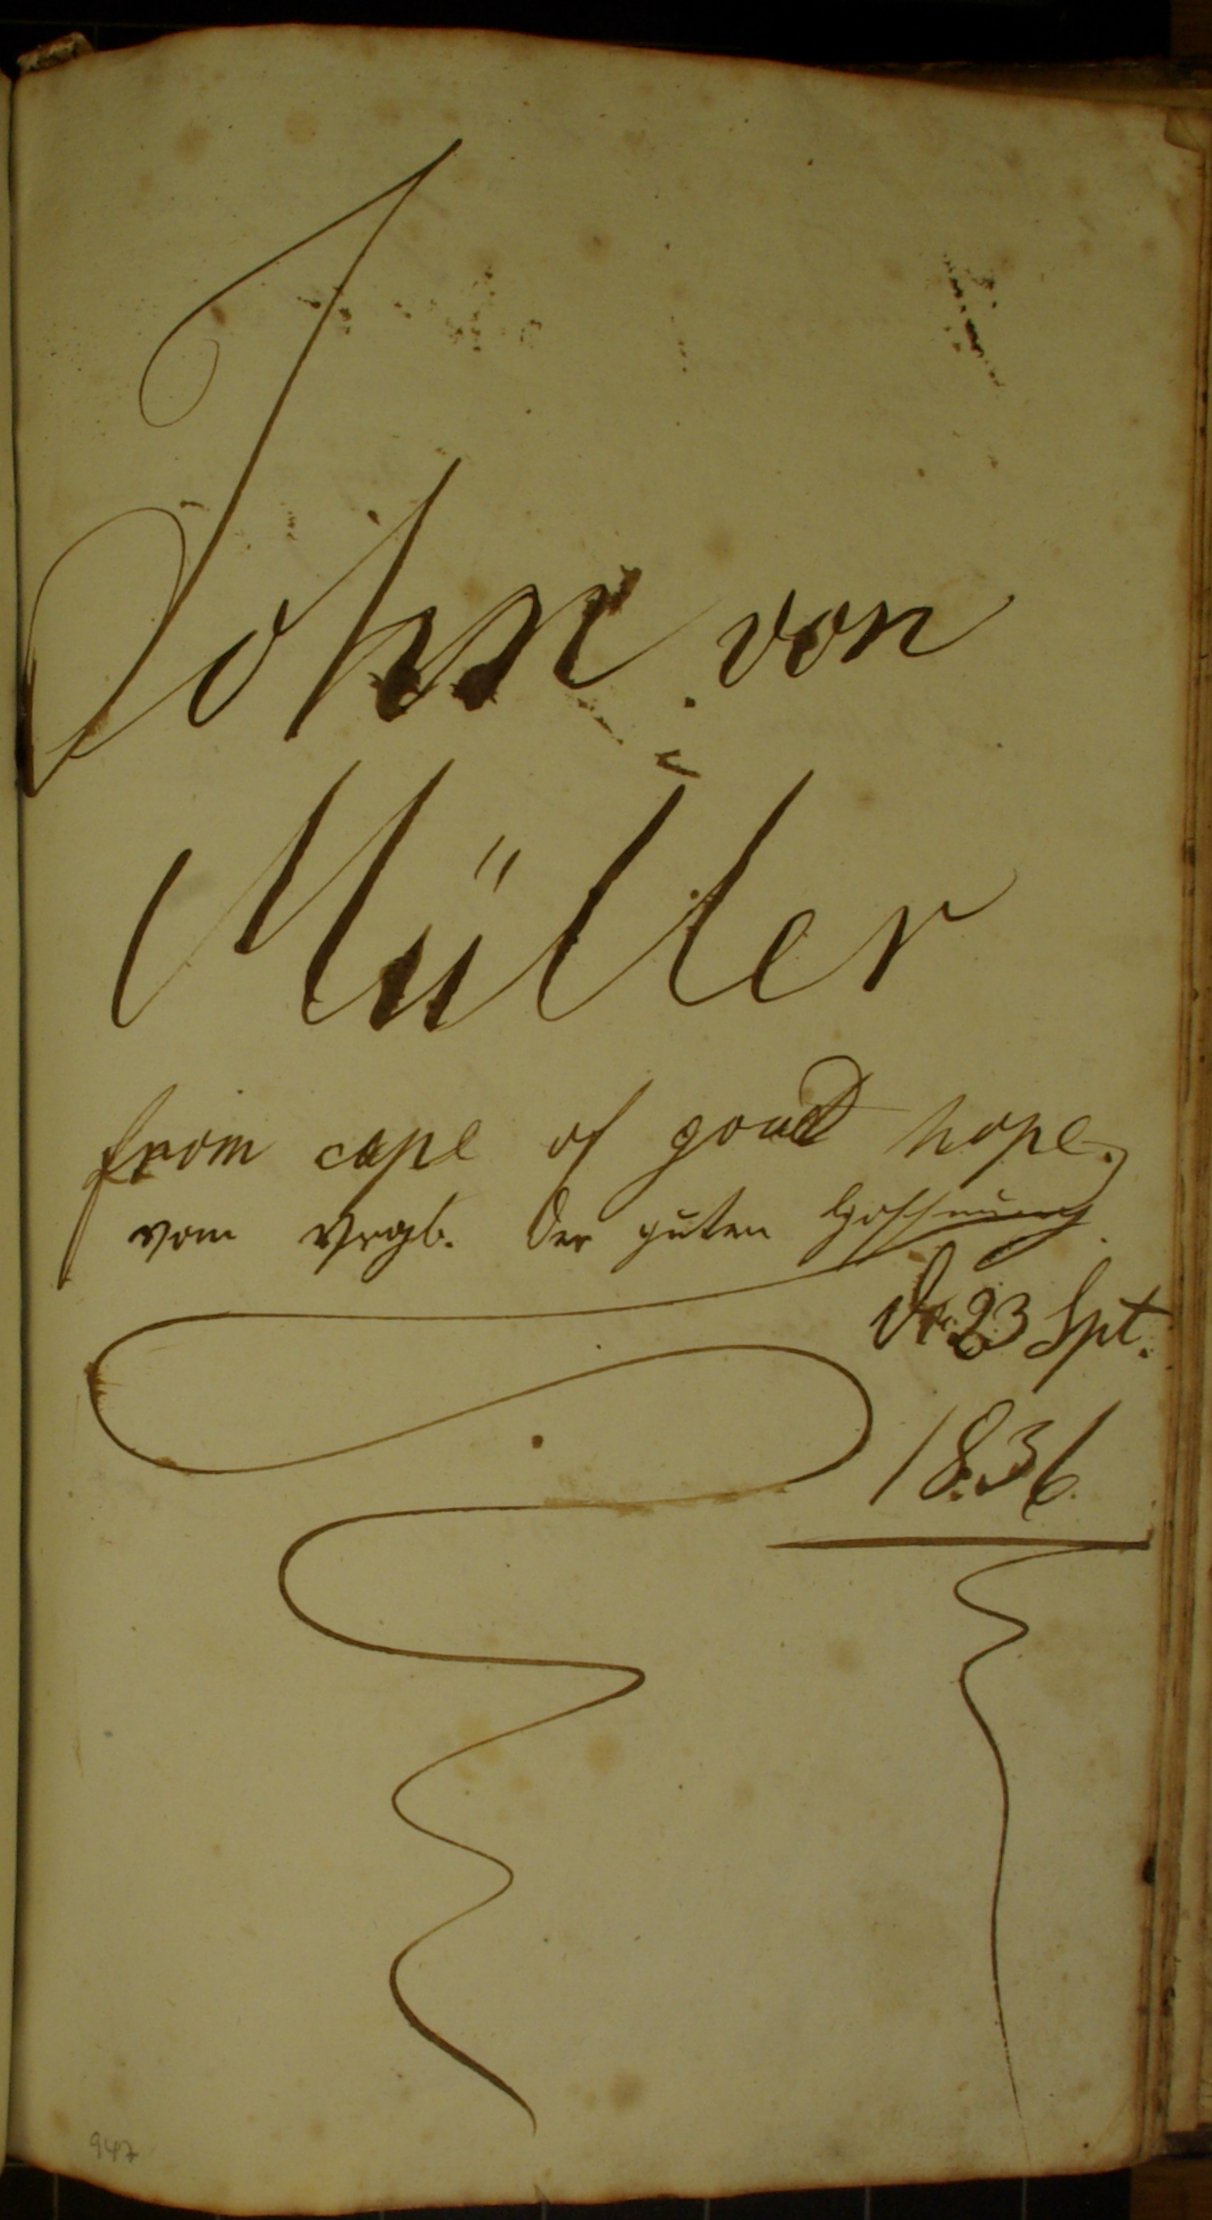 John von
Müller
from cape of good hope.
vom Vrgb. der guten Hoffnung.
23 Spt.
1836.
947